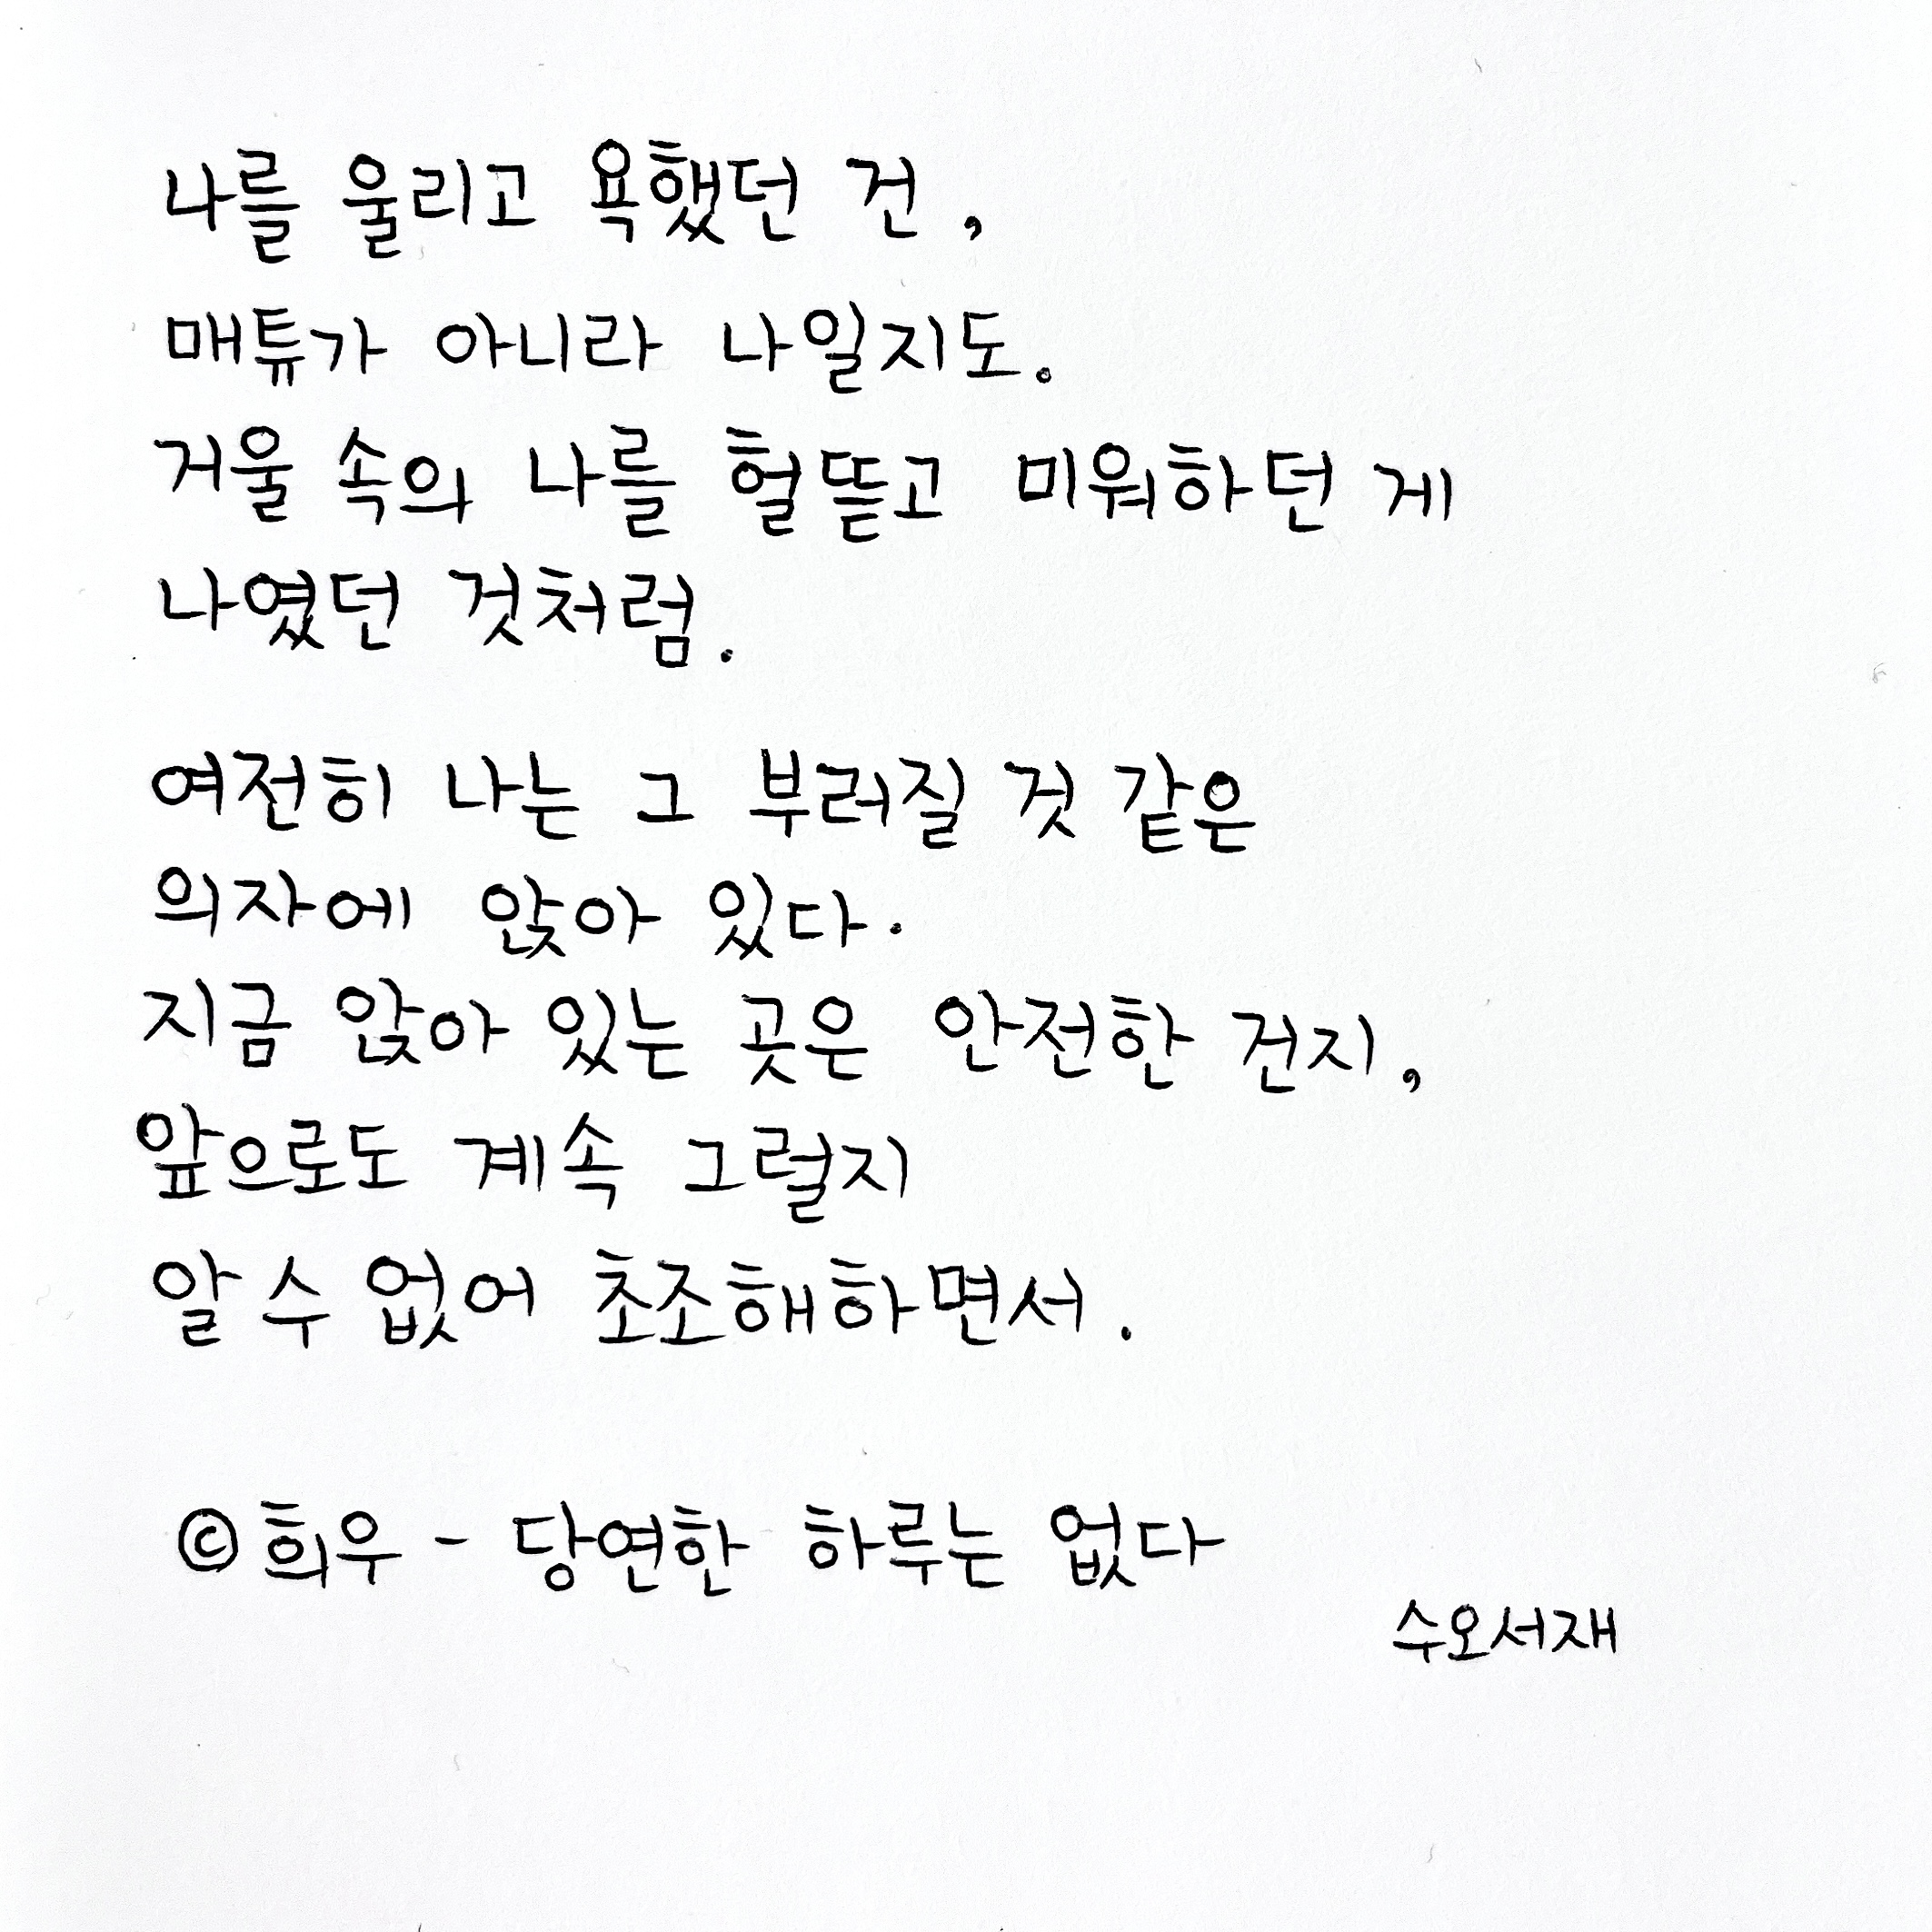 나를 울리고 욕했던 건,
매튜가 아니라 나일지도.
거울 속의 나를 헐뜯고 미워하던 게
나였던 것처럼.
여전히 나는 그 부러질 것 같은
의자에 앉아 있다.
지금 앉아 있는 곳은 안전한 건지,
앞으로도 계속 그럴지
알 수 없어 초조해하면서.
©희우 - 당연한 하루는 없다
수오서재